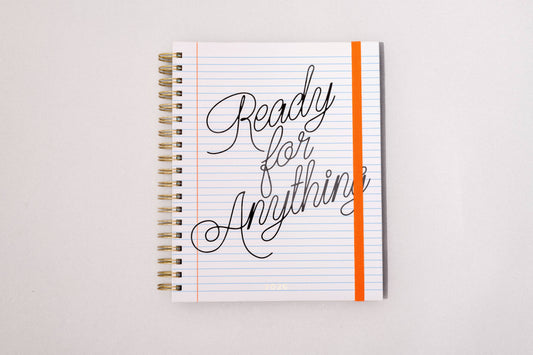 Ready
for
Anything